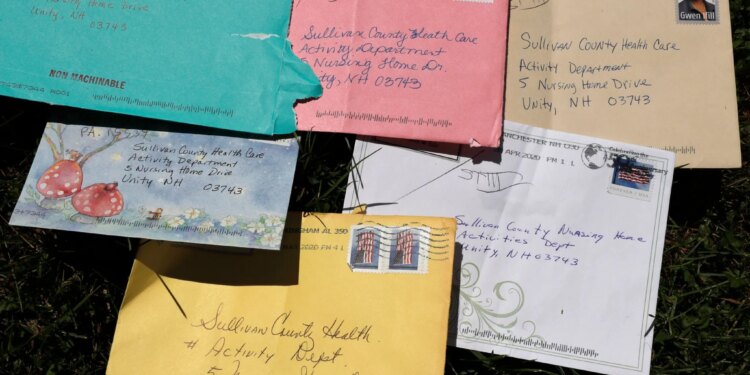 5 Nursing Home Drive
Unity, NH 03743
NON MACHINABLE
Sullivan County Health Care
Activity Department
5 Nursing Home Dr.
Unity, NH 03743
Gwen Ifill
Sullivan County Health Care
Activity Department
5 Nursing Home Drive
Unity, NH 03743
PA.
Sullivan County Health Care
Activity Department
5 Nursing Home Drive
Unity NH 03743
MANCHESTER NH 030
APR 2020 PM 1 L
FOREVER USA
Sullivan County Nursing Home
Activities Dept
Unity, NH 03743
AL 350
2020 PM 4
Sullivan County Health
# Activity Dept
5